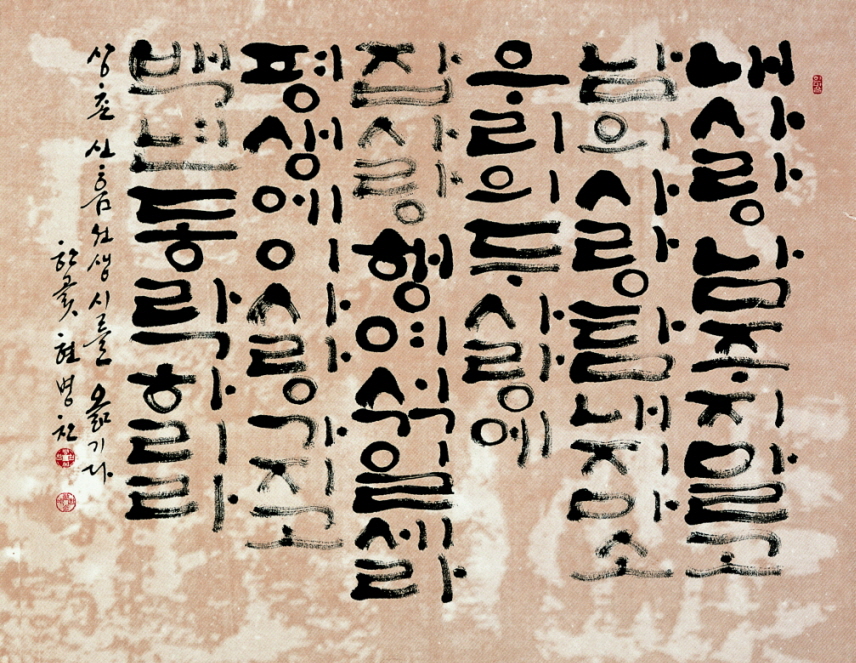 내사랑 남주지말고
남의사랑탐내지마소
우리의두사랑에
잡사랑 행여섞일세라
평생에이사랑가지고
백년동락하리라
상촌 신흠선생 시를 옮기다
한곬 현병찬